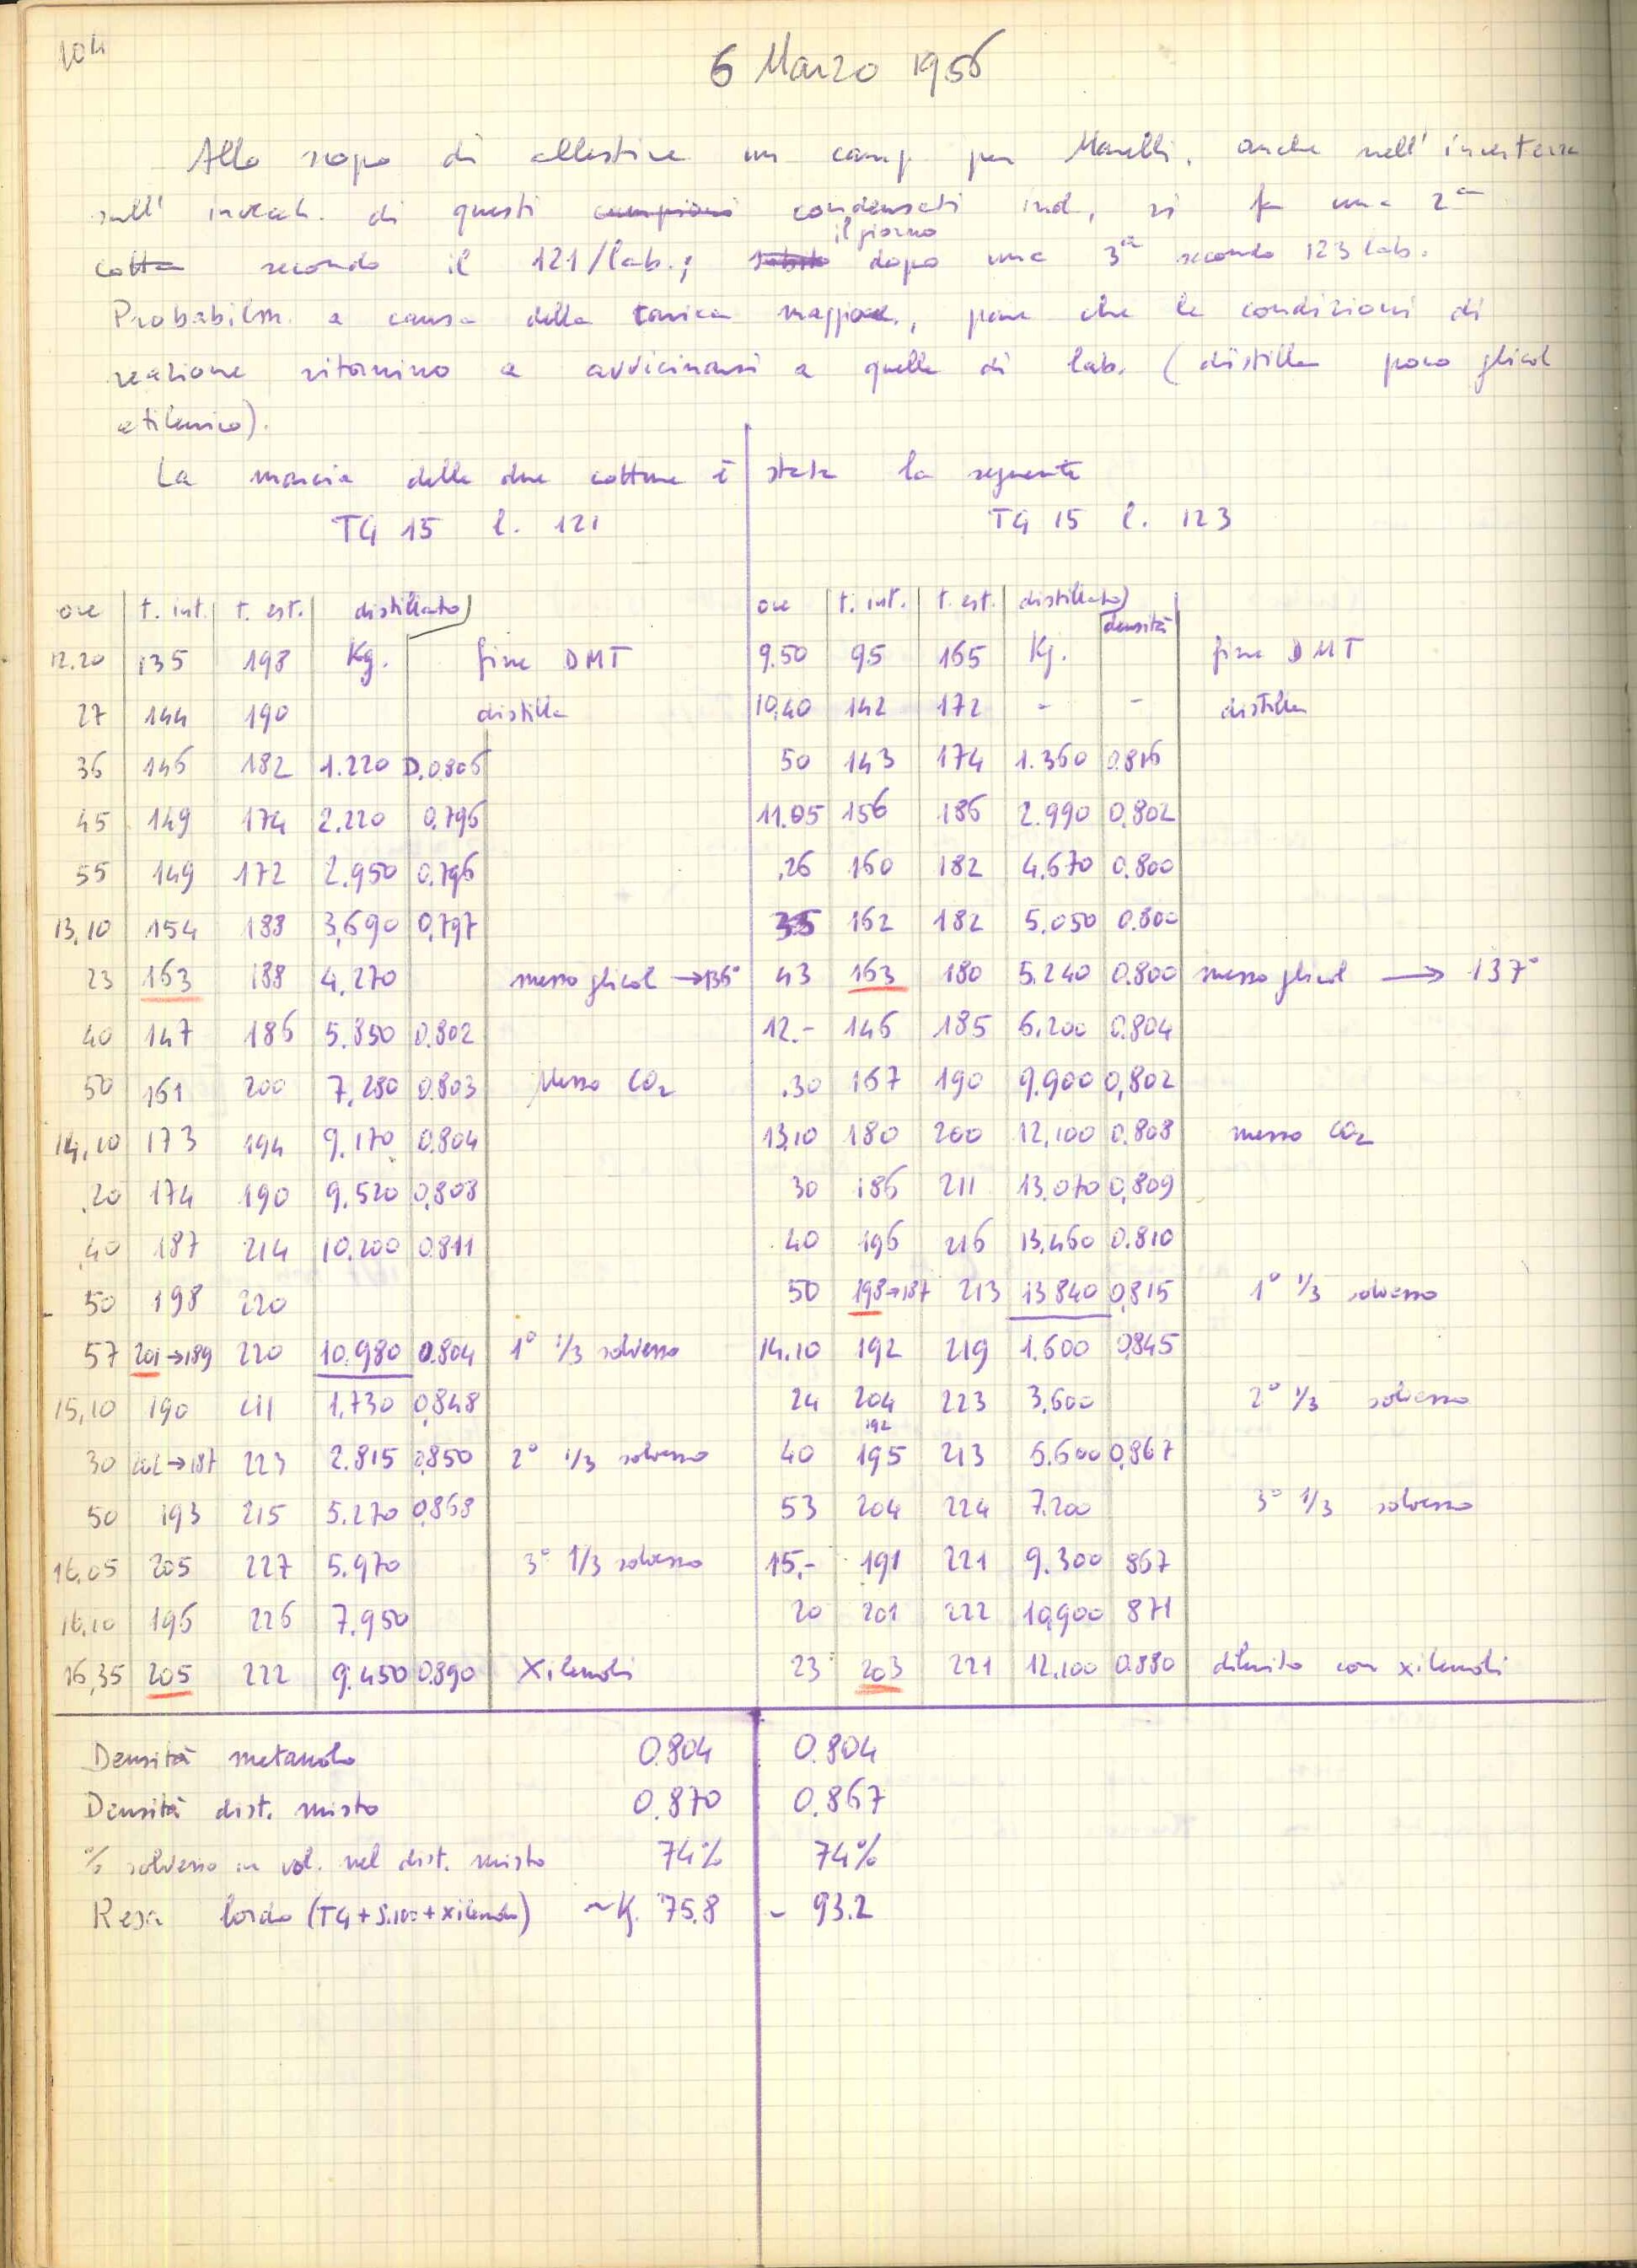 104
6 Marzo 1956
Allo scopo di allestire un camp per Marelli, anche nell' incertezza
sull' invecch. di questi campioni condensati ind, si fa una 2ª
cotta secondo il 121/lab.; subito il giorno dopo una 3ª secondo 123 lab.
Probabilm. a causa della carica maggiore, pare che le condizioni di
reazione ritornino a avvicinarsi a quelle di lab. (distilla poco glicol
etilenico).
La marcia delle due cotture è stata la seguente
TG 15 l. 121
ore t. int. t. est. distillato
12.20 135 198 Kg. fine DMT
27 144 190 distilla
36 146 182 1.220 D.0806
45 149 174 2.220 0.796
55 149 172 2.950 0.796
13,10 154 188 3,690 0,797
23 163 188 4,270 messo glicol → 136°
40 147 186 5.850 0.802
50 161 200 7,280 0.803 Messo CO2
14,10 173 194 9.170 0.804
.20 174 190 9.520 0,808
.40 187 214 10.200 0.811
50 198 220
57 201→189 220 10.980 0.804 1° 1/3 solvesso
15,10 190 211 1.730 0,848
30 202→187 223 2.815 0,850 2° 1/3 solvesso
50 193 215 5.270 0,868
16,05 205 227 5.970 3° 1/3 solvesso
16,10 196 226 7.950
16,35 205 222 9.450 0.890 Xilenoli
TG 15 l. 123
ore t. int. t. est. distillato densità
9.50 95 165 Kg. fine DMT
10,40 142 172 - - distilla
50 143 174 1.360 0.816
11.05 156 186 2.990 0.802
.26 160 182 4.670 0.800
35 162 182 5.050 0.800
43 163 180 5.240 0.800 messo glicol → 137°
12.- 146 185 6.200 0.804
.30 167 190 9.900 0,802
13,10 180 200 12,100 0.808 messo CO2
30 186 211 13.070 0,809
.40 196 216 13,460 0.810
50 198→187 213 13.840 0,815 1° 1/3 solvesso
14.10 192 219 1.600 0,845
24 204 223 3,600 2° 1/3 solvesso
192
40 195 213 5.600 0,867
53 204 224 7.200 3° 1/3 solvesso
15,- 191 221 9.300 867
20 201 222 10,900 871
23 203 221 12.100 0.880 diluito con xilenoli
Densità metanolo 0.804 0.804
Densità dist. misto 0.870 0.867
% solvesso in vol. nel dist. misto 74% 74%
Resa lordo (TG + S.100 + xilenolo) ~K. 75.8 - 93.2